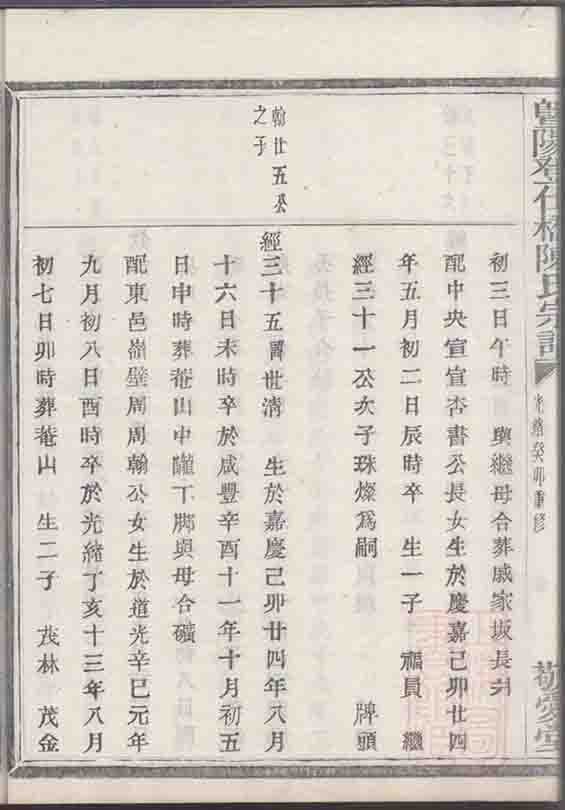 暨陽孝仁橋陳氏宗譜
光緒癸卯重修
敬愛堂
初三日午時 與繼母合葬戚家坂長弄
配中央宣宣杏書公長女生於慶嘉己卯廿四
年五月初二日辰時卒 生一子 福員 繼
經三十一公次子珠燦爲嗣 牌頭
翰廿五公
之子
經三十五諱世清 生於嘉慶己卯廿四年八月
十六日未時卒於咸豐辛酉十一年十月初五
日申時葬菴山中隴下脚與母合礦
配東邑嶺壁周周翰公女生於道光辛巳元年
九月初八日酉時卒於光緒丁亥十三年八月
初七日卯時葬菴山 生二子 茂林 茂金